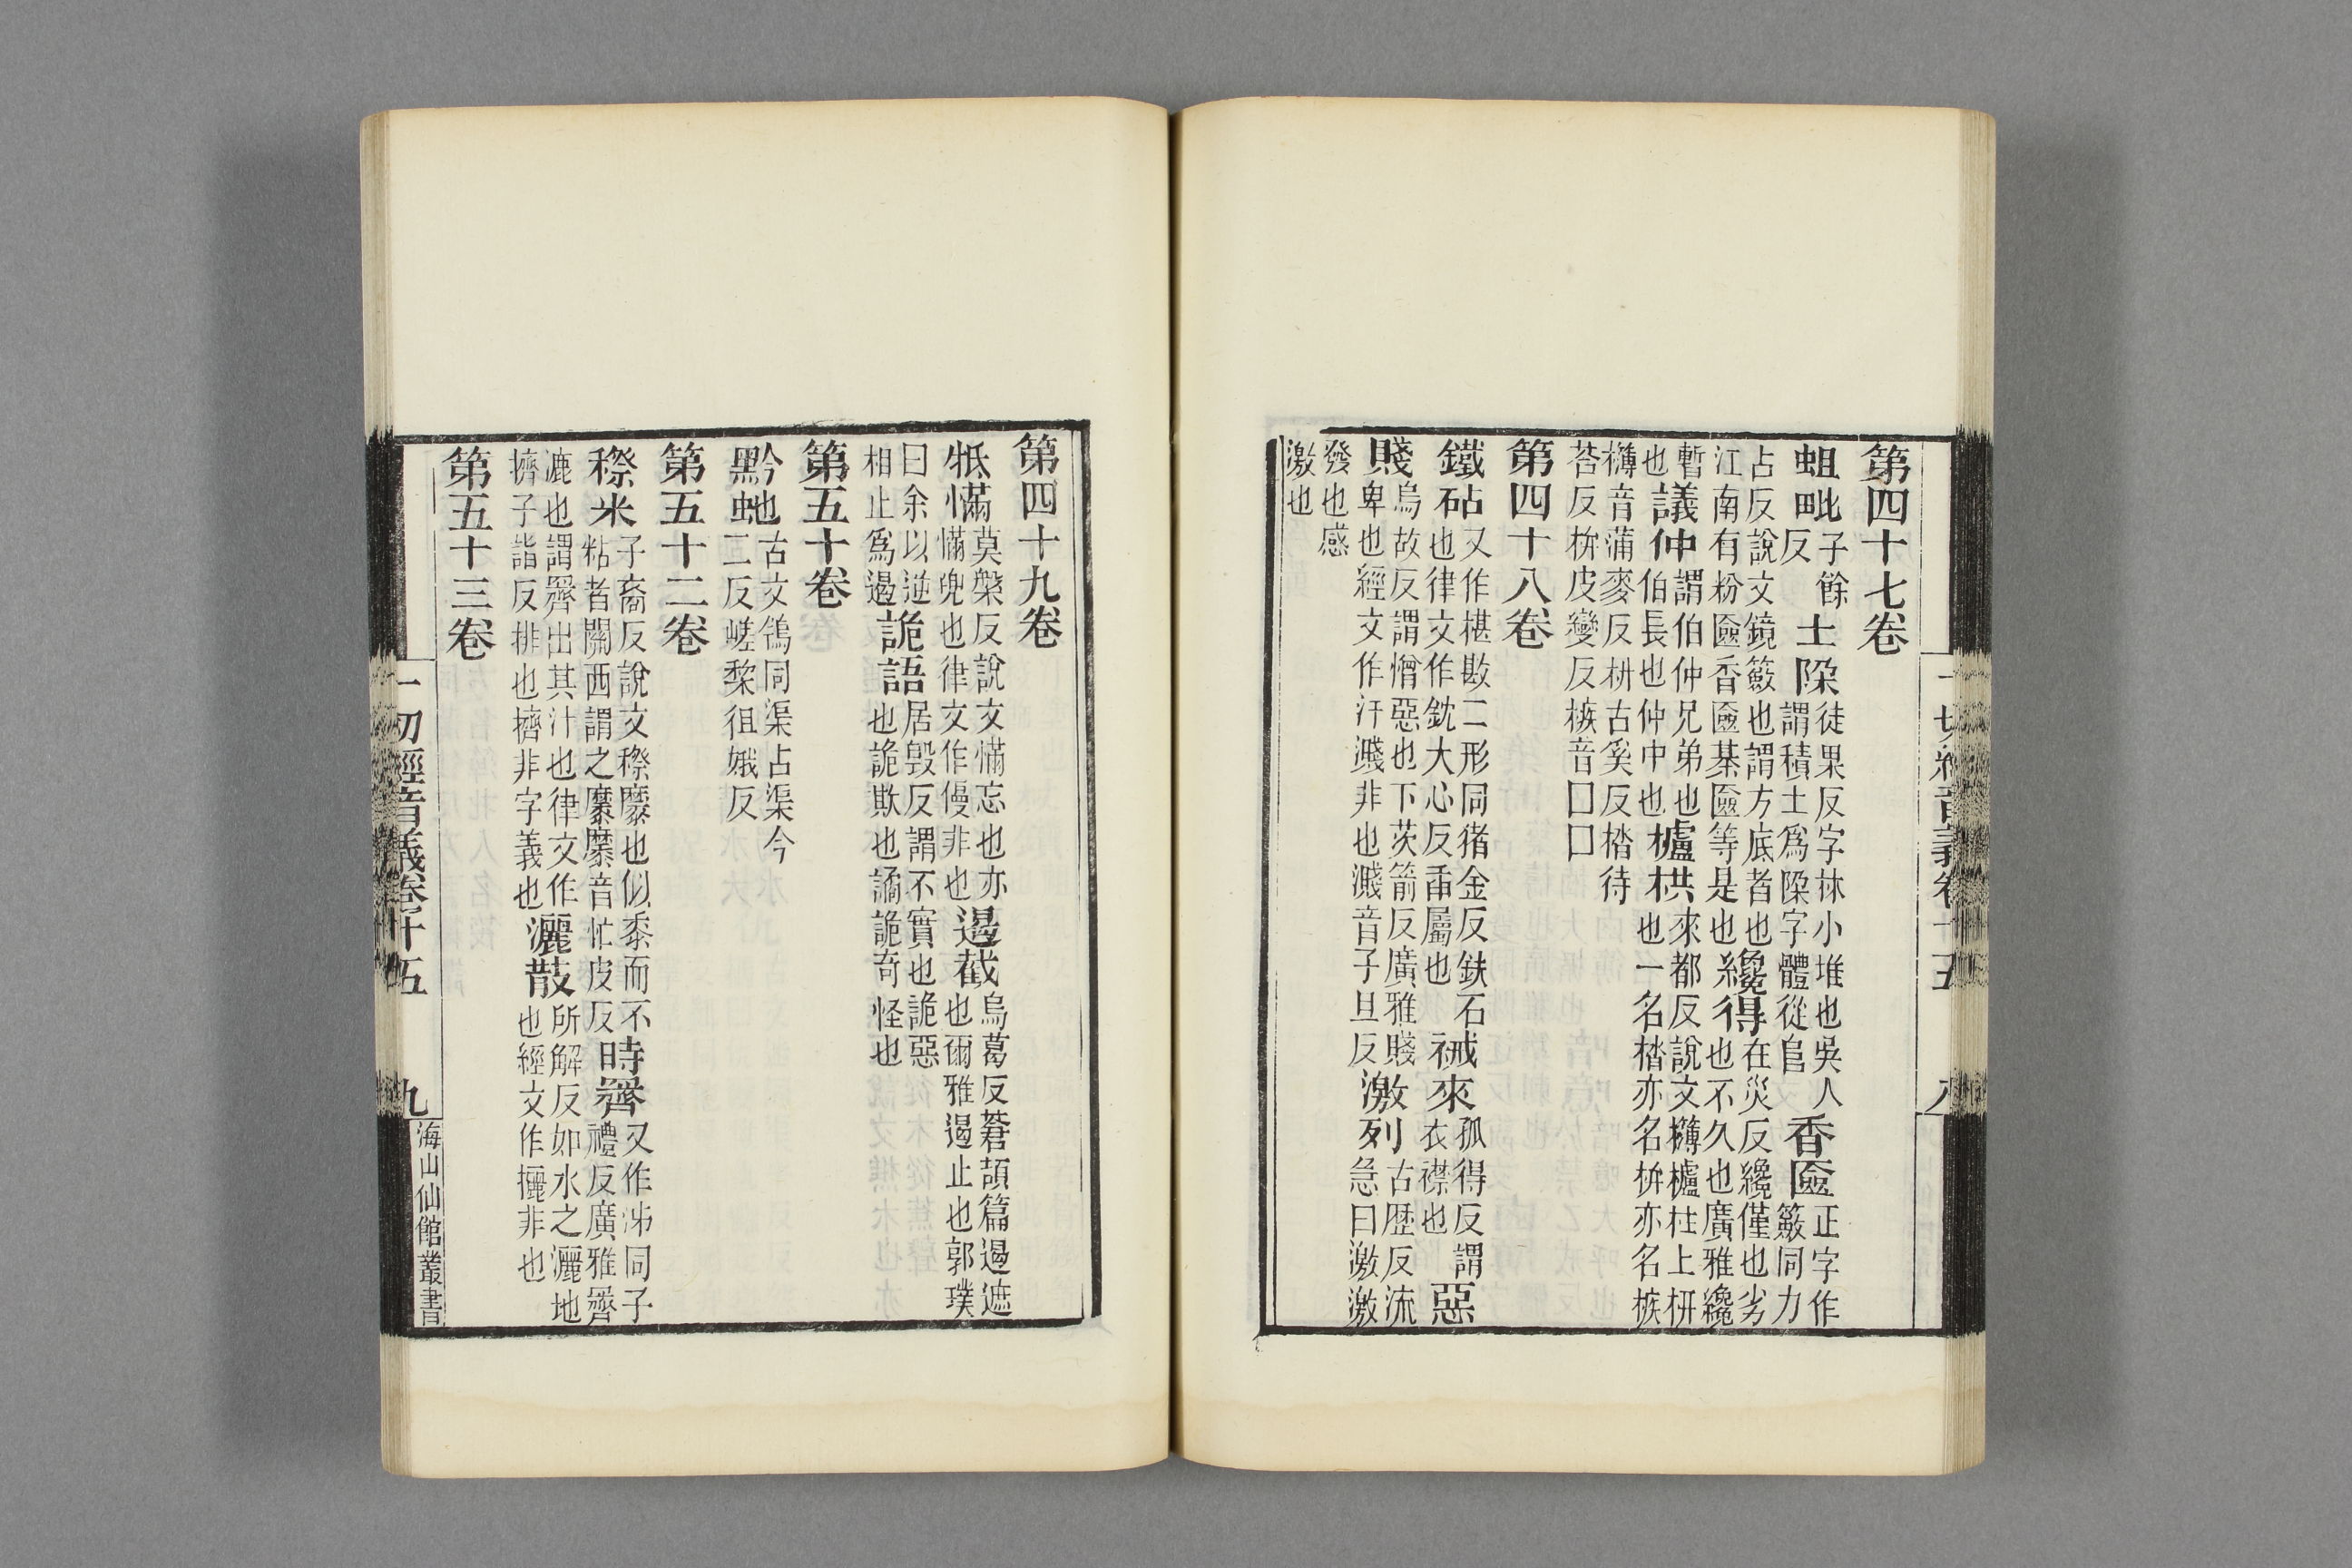 第四十七卷
蛆𧉧子餘反土陊徒果反字林小堆也吳人謂積土爲陊字體從𨸏香匳正字作籢同力
占反說文鏡籢也謂方底者也江南有粉匳香匳棊匳等是也纔得在災反纔僅也劣也不久也廣雅纔
暫也議仲謂伯仲兄弟也伯長也仲中也櫨栱來都反說文欂櫨柱上枅也一名榙亦名栟亦名槉
欂音蒲麥反枅古奚反榙待荅反栟皮變反槉音囗囗
第四十八卷
鐵砧又作椹㪛二形同猪金反鈇石也律文作鈂大心反臿屬也祴來孤得反謂衣襟也惡
賤烏故反謂憎惡也下茨箭反廣雅賤卑也經文作汙濺非也濺音子旦反激列古歷反流急曰激激
發也感激也
一切經音義卷十五 八
第四十九卷
牴㦖莫槃反說文㦖忘也亦㦖兜也律文作僈非也遏截烏葛反蒼頡篇遏遮也爾雅遏止也郭璞
曰余以逆相止爲遏詭語居毀反謂不實也詭惡也詭欺也譎詭奇怪也
第五十卷
黔虵古文鳹同渠占渠今二反嵯棃徂娥反
第五十二卷
穄米子裔反說文穄䵚也似黍而不粘者關西謂之䵚䵚音忙皮反時又作泲同子禮反廣雅
漉也謂出其汁也律文作擠子詣反排也擠非字義也灑散所解反如水之灑地也經文作攦非也
第五十三卷
一切經音義卷十五 九
海山仙館叢書